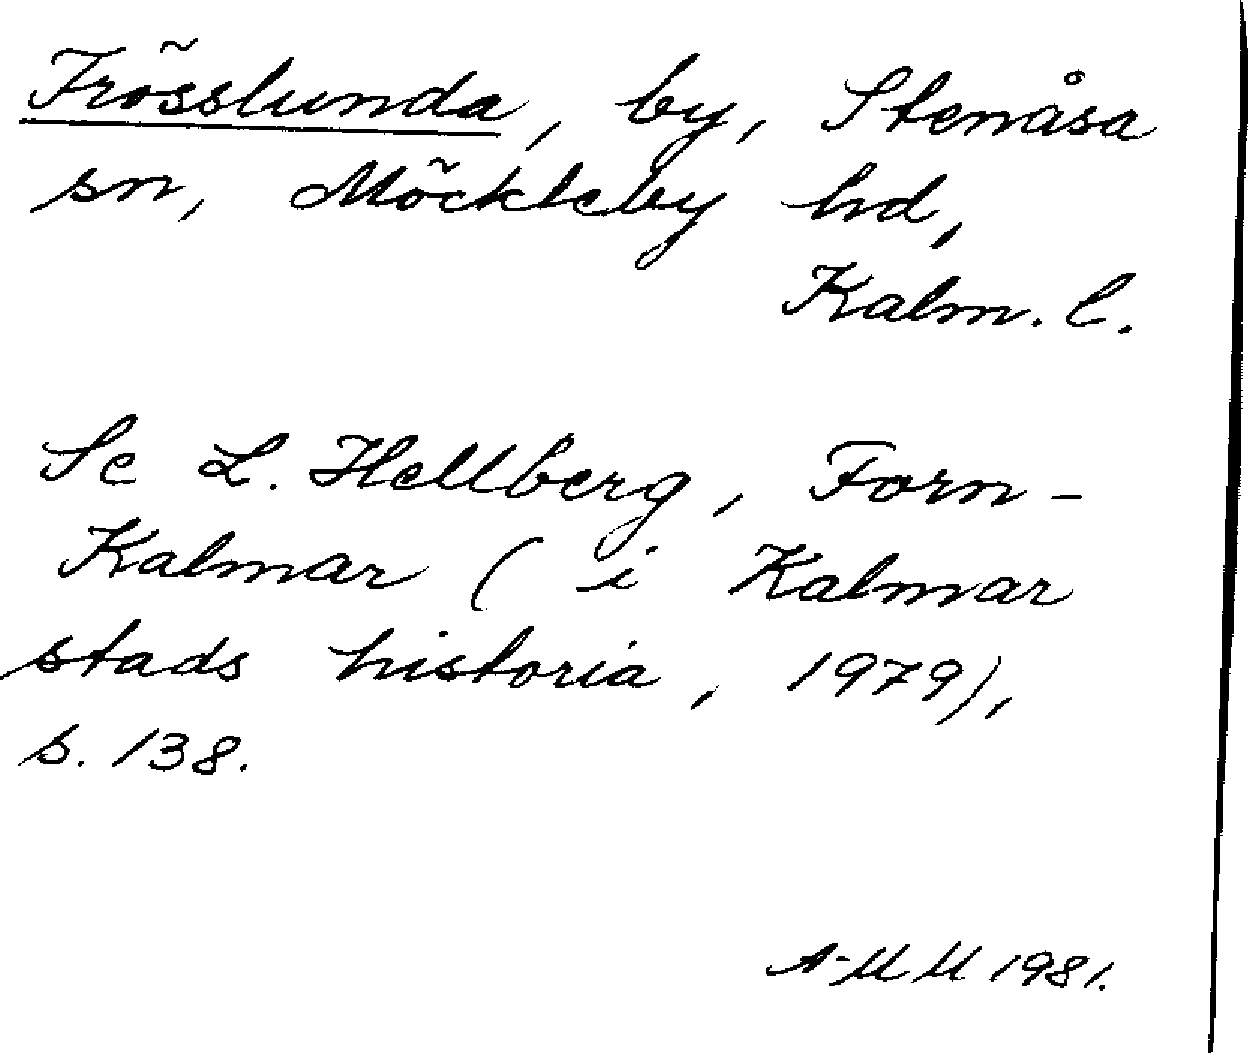 Frösslunda, by, Stenåsa
sn, Möckleby hd,
Kalm. l.
Se L. Hellberg, Forn-
Kalmar (i Kalmar
stads historia, 1979),
s. 138.
A-MM 1981.